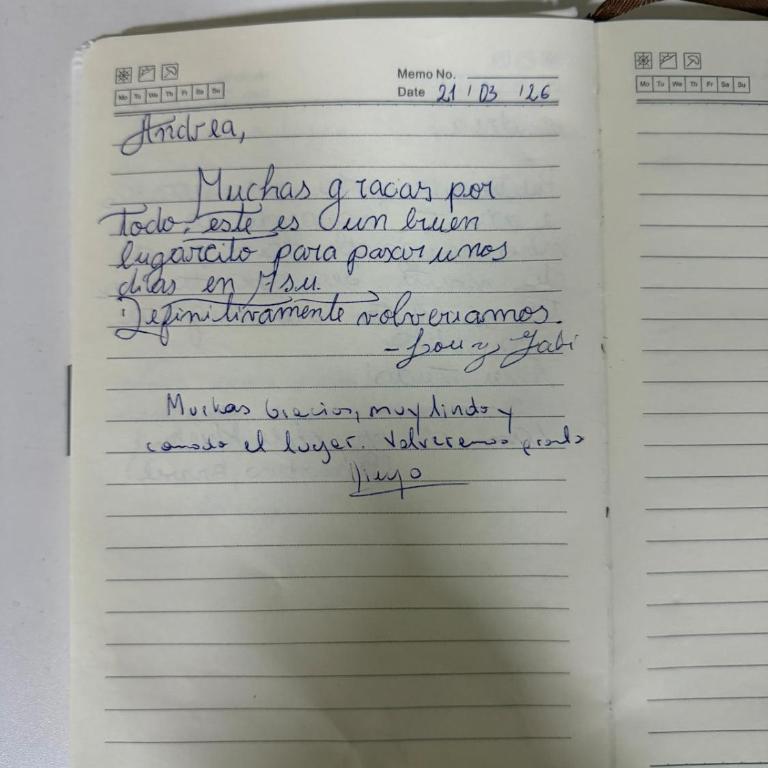 Memo No.
Mo Tu We Th Fr Sa Su
Date 21 / 03 / 26
Andrea,
Muchas gracias por
todo, este es un buen
lugarcito para pasar unos
dias en Asu.
Definitivamente volveriamos.
- Lou y Gabi
Muchas Gracias, muy lindo y
comodo el lugar. Volveremos pronto
Diego
Mo Tu We Th Fr Sa Su